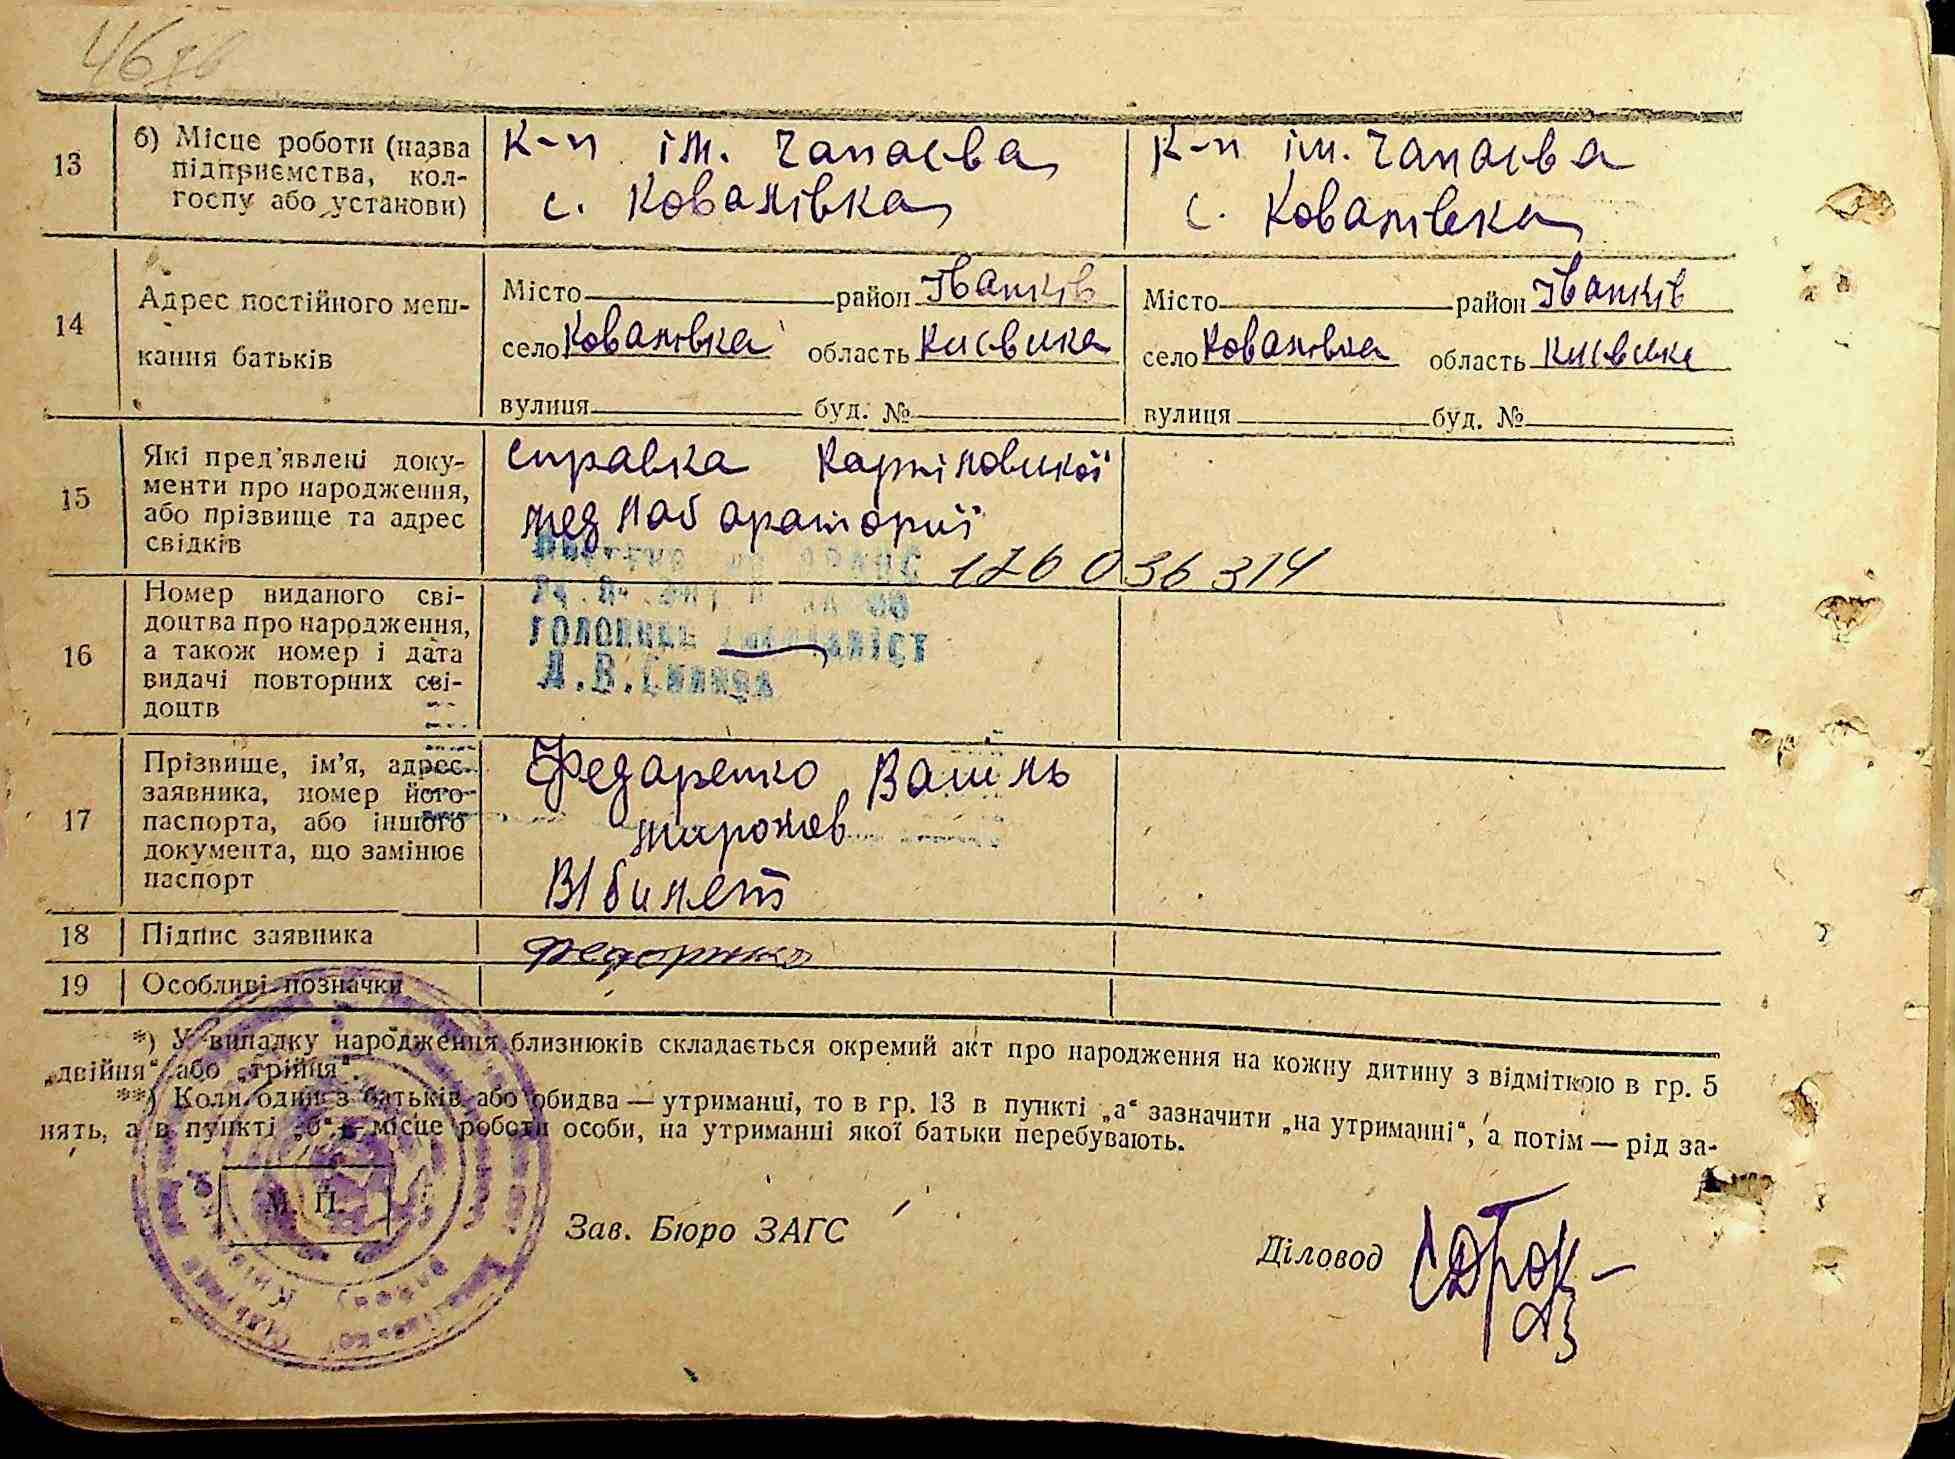 46 зв
13
б) Місце роботи (назва
підприємства, кол-
госпу або установи)
К-п ім. Чапаєва
с. Ковалівка
К-п ім. Чапаєва
с. Ковалівка
14
Адрес постійного меш-
кання батьків
Місто район Іванків
село Ковалівка область Київська
вулиця буд. №
Місто район Іванків
село Ковалівка область Київська
вулиця буд. №
15
Які пред’явлені доку-
менти про народження,
або прізвище та адрес
свідків
справка Карпіловської
мед лабараторії
176 036 314
16
Номер виданого сві-
доцтва про народження,
а також номер і дата
видачі повторних сві-
доцтв
17
Прізвище, ім’я, адрес
заявника, номер його
паспорта, або іншого
документа, що замінює
паспорт
Федаренко Василь
миронов
В/билет
18 Підпис заявника
19 Особливі позначки
*) У випадку народження близнюків складається окремий акт про народження на кожну дитину з відміткою в гр. 5
„двійня“ або „трійня“.
**) Коли один з батьків або обидва — утриманці, то в гр. 13 в пункті „а“ зазначити „на утриманні“, а потім — рід за-
нять, а в пункті „б“ — місце роботи особи, на утриманні якої батьки перебувають.
М. П.
Зав. Бюро ЗАГС
Діловод